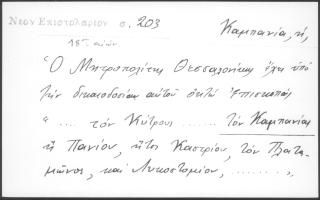 Νεον Επιστολαριον σ. 203
Καμπανία, ἡ,
18ος αἰών.
"Ὁ Μητροπολίτης Θεσσαλονίκης ἔχει ὑπὸ
τὴν δικαιοδοσίαν αὐτοῦ ὀκτὼ ἐπισκοπάς
".... τὸν Κίτρους ....... τὸν Καμπανίας
ἢ Πανίου, ἤτοι Καστρίου, τὸν Πλατα-
μῶνος, καὶ Λυκοστομίου, ........ ",